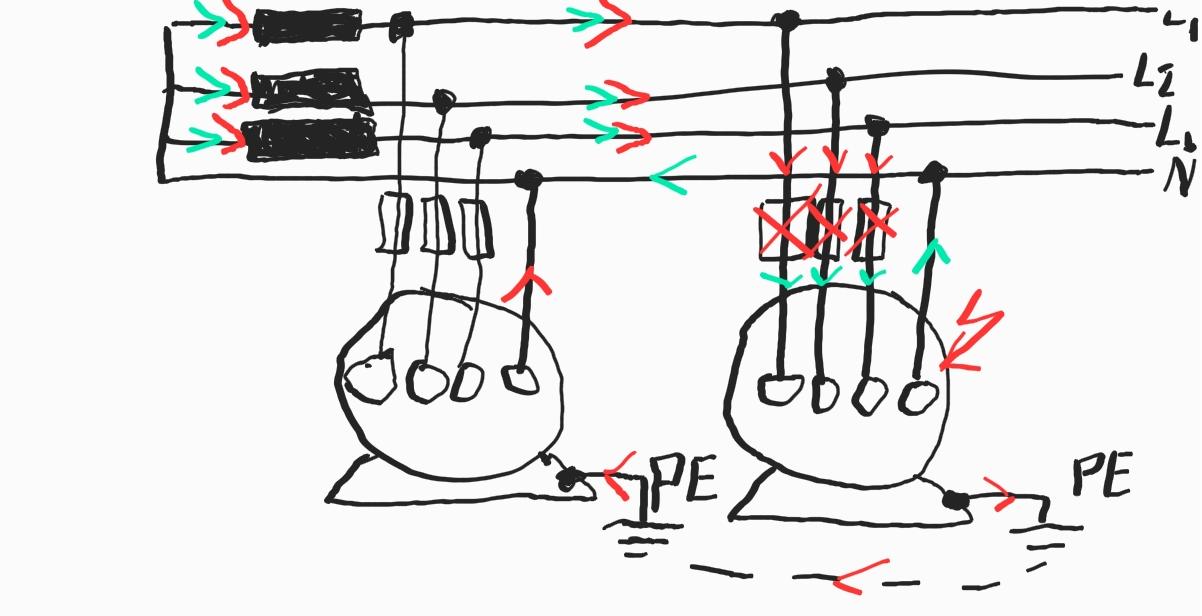 L1
L2
L3
N
PE
PE